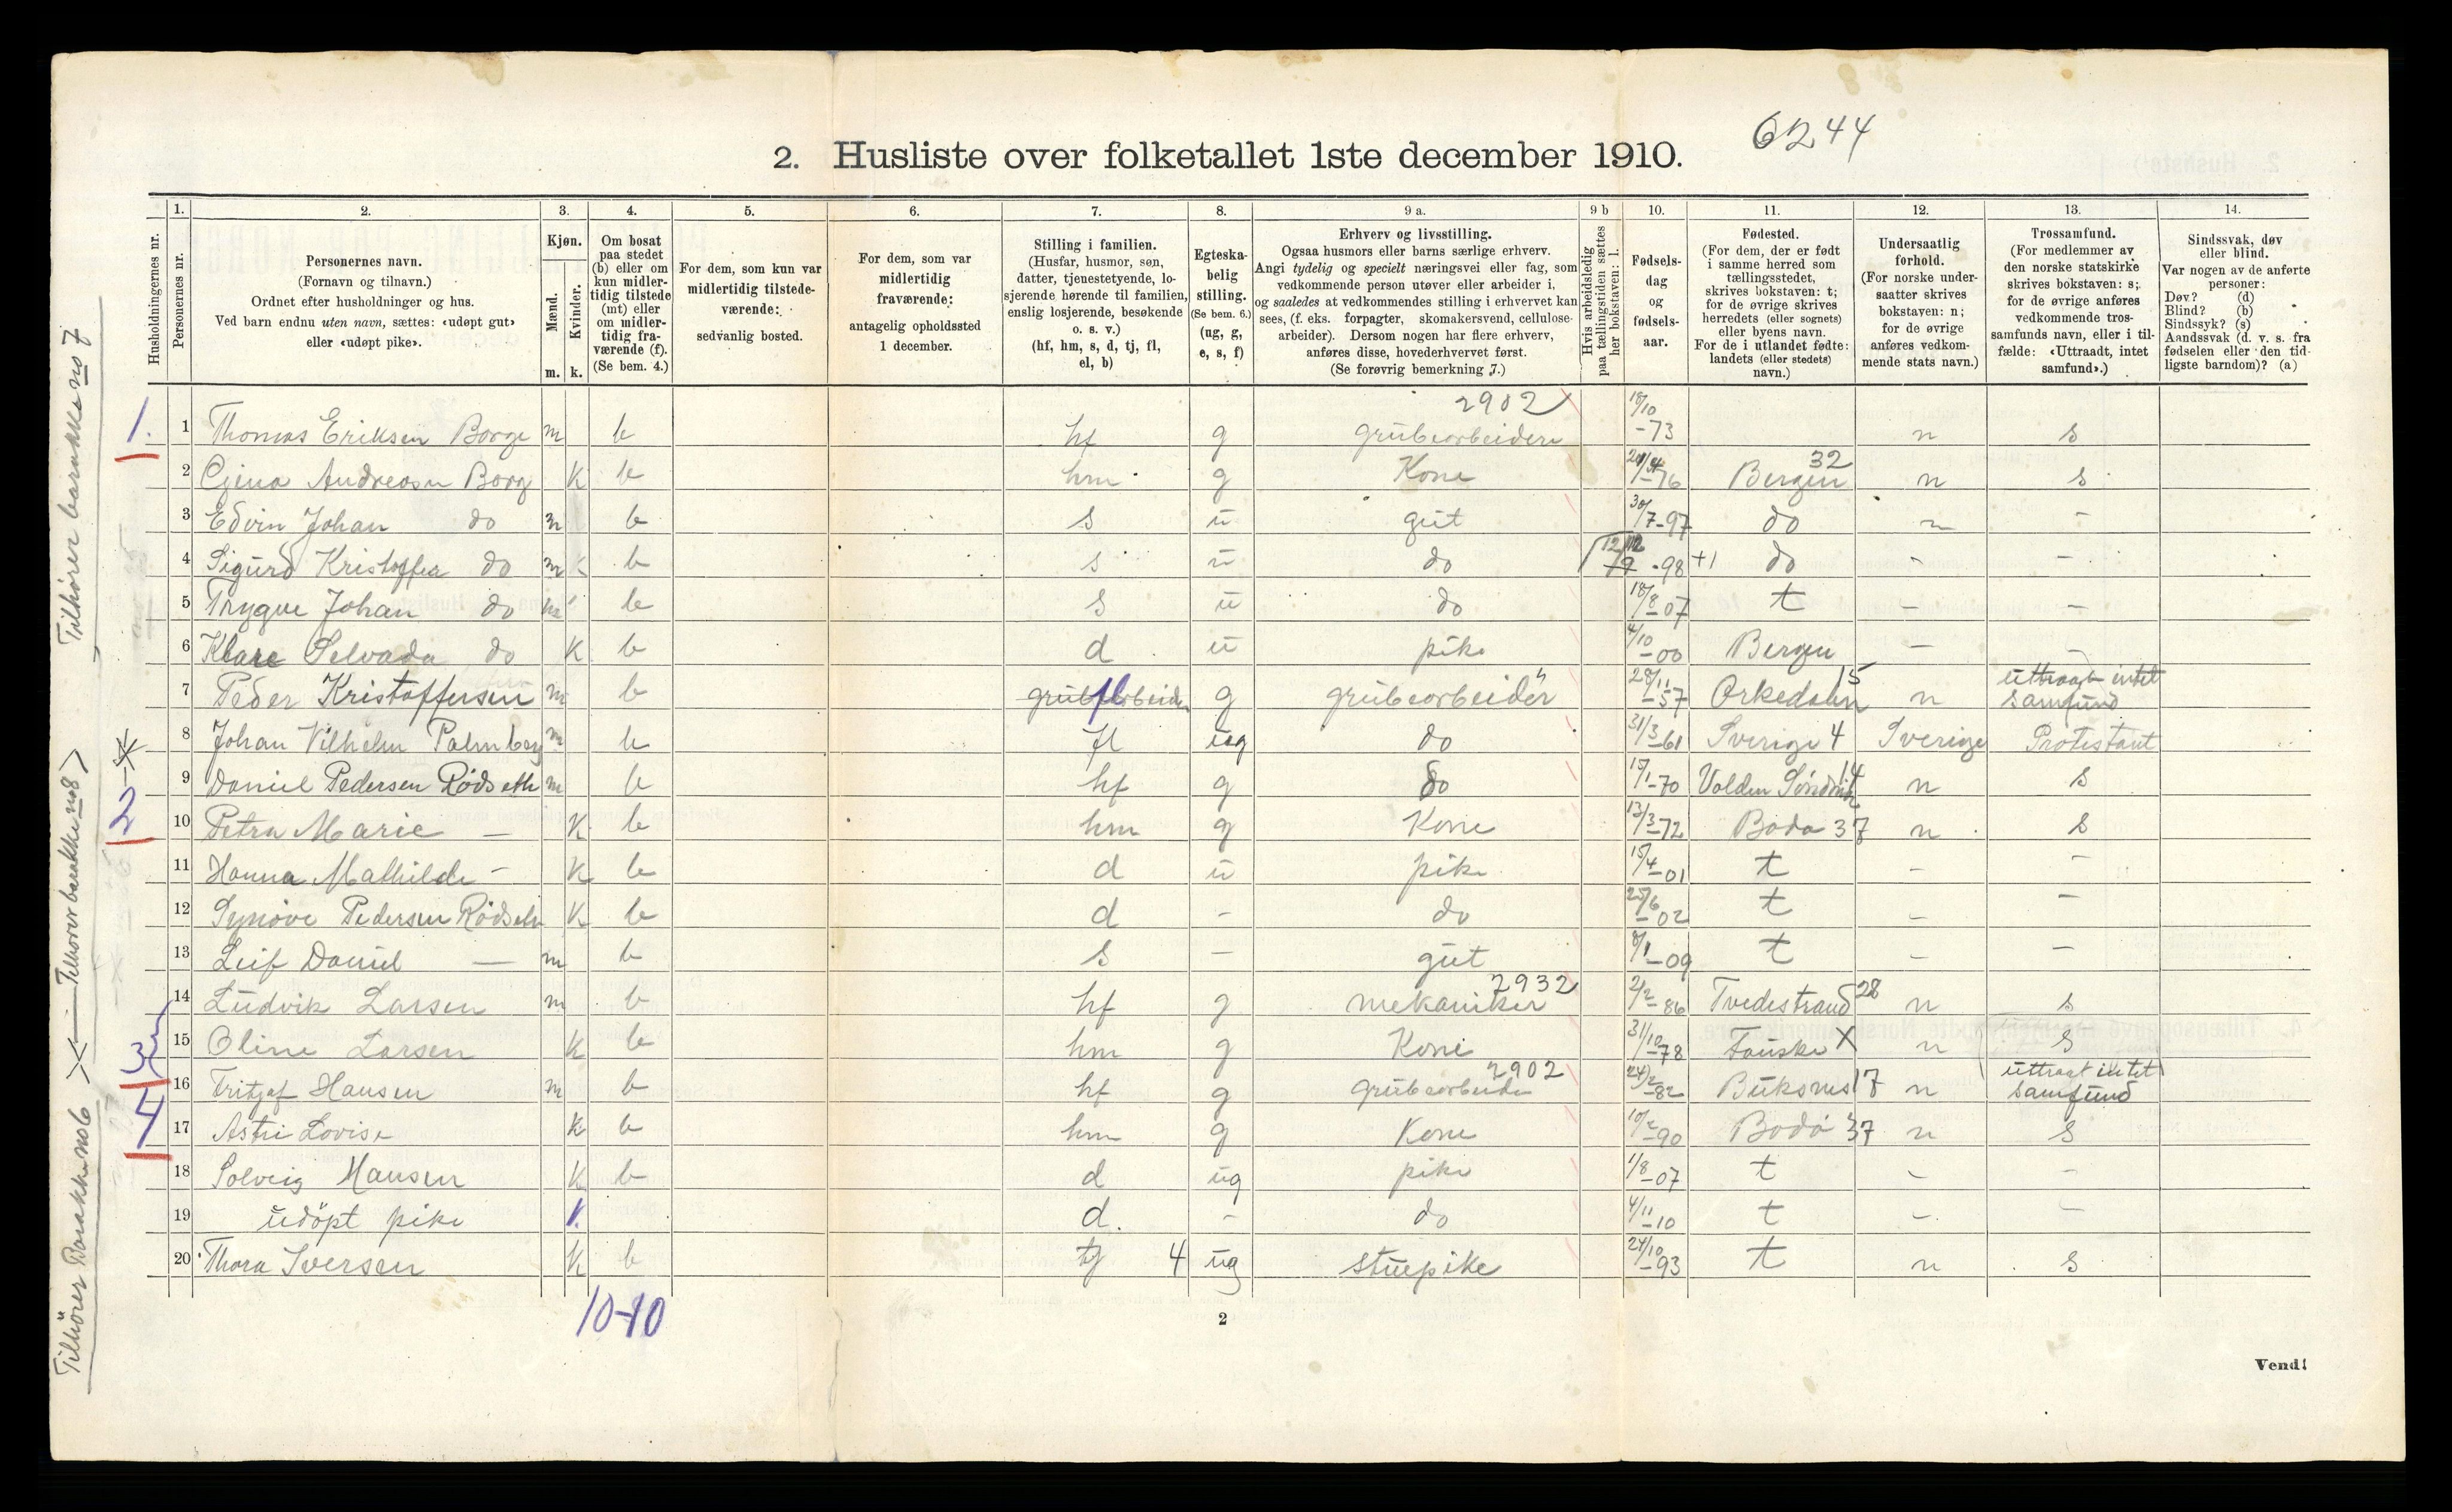 6244
2. Husliste over folketallet 1ste december 1910.
Husholdningernes nr.
1. Personernes nr.
2. Personernes navn.
(Fornavn og tilnavn.)
Ordnet efter husholdninger og hus.
Ved barn endnu uten navn, sættes: «udøpt gut»
eller «udøpt pike».
3. Kjøn.
Mænd. Kvinder.
m. k.
4. Om bosat
paa stedet
(b) eller om
kun midler-
tidig tilstede
(mt) eller
om midler-
tidig fra-
værende (f).
(Se bem. 4.)
5. For dem, som kun var
midlertidig tilstede-
værende:
sedvanlig bosted.
6. For dem, som var
midlertidig
fraværende:
antagelig opholdssted
1 december.
7. Stilling i familien.
(Husfar, husmor, søn,
datter, tjenestetyende, lo-
sjerende hørende til familien,
enslig losjerende, besøkende
o. s. v.)
(hf, hm, s, d, tj, fl,
el, b)
8. Egteska-
belig
stilling.
(Se bem. 6.)
(ug, g,
e, s, f)
9 a. Erhverv og livsstilling.
Ogsaa husmors eller barns særlige erhverv.
Angi tydelig og specielt næringsvei eller fag, som
vedkommende person utøver eller arbeider i,
og saaledes at vedkommendes stilling i erhvervet kan
sees, (f. eks. forpagter, skomakersvend, cellulose-
arbeider). Dersom nogen har flere erhverv,
anføres disse, hovederhvervet først.
(Se forøvrig bemerkning 7.)
9 b Hvis arbeidsledig
paa tællingstiden sættes
her bokstaven: l.
10. Fødsels-
dag
og
fødsels-
aar.
11. Fødested.
(For dem, der er født
i samme herred som
tællingsstedet,
skrives bokstaven: t;
for de øvrige skrives
herredets (eller sognets)
eller byens navn.
For de i utlandet fødte:
landets (eller stedets)
navn.)
12. Undersaatlig
forhold.
(For norske under-
saatter skrives
bokstaven: n;
for de øvrige
anføres vedkom-
mende stats navn.)
13. Trossamfund.
(For medlemmer av
den norske statskirke
skrives bokstaven: s;
for de øvrige anføres
vedkommende tros-
samfunds navn, eller i til-
fælde: «Uttraadt, intet
samfund».)
14. Sindssvak, døv
eller blind.
Var nogen av de anførte
personer:
Døv? (d)
Blind? (b)
Sindssyk? (s)
Aandssvak (d. v. s. fra
fødselen eller den tid-
ligste barndom)? (a)
1. 1 Thomas Eriksen Borge m b hf g grubearbeidere 2902 18/10 -73 n s
2 Gjina Andreasen Borg k b hm g Kone -76 Bergen 32 n s
3 Edvin Johan do m b s u gut 30/7-97 do n -
4 Sigurd Kristoffer do m b s u do 12/12 -98 +1 do - -
5 Trygve Johan do m b s u do 18/8-07 t - -
6 Klare Selvada do k b d u pike 4/10-00 Bergen - -
7 Peder Kristoffersen m b fl g grubearbeider 28/11-57 Orkedalen 15 n uttraadt intet samfund
8 Johan Vilhelm Palmberg m b fl ug do 31/3-61 Sverige 4 Sverige Protestant
2 9 Daniel Pedersen Rødseth m b hf g do 15/1-70 Volden Søndmør 14 n s
10 Petra Marie — k b hm g Kone 13/3-72 Bodø 37 n s
11 Hanna Mathilde - k b d u pike 15/4-01 t - -
12 Synöve Pedersen Rödseth k b d - do 25/6-02 t - -
13 Leif Daniel — m b s - gut 8/1-09 t - -
3 14 Ludvik Larsen m b hf g mekaniker 2932 2/2-86 Tvedestrand 28 n s
15 Oline Larsen k b hm g Kone 31/10-78 Fauske X n s
4 16 Fritjof Hansen m b hf g grubearbeider 2902 24/2-82 Buksnes 17 n uttraat intet samfund
17 Astri Lovise k b hm g Kone 10/2-90 Bodö 37 n s
18 Solveig Hansen k b d ug pike 1/8-07 t - -
19 udöpt pike k. d. - do 4/11-10 t - -
20 Thora Iversen k b tj 4 ug stuepike 24/10-93 t n s
10-10
2
Vend!
Tilhører barakke no 7
Tilhörer barakke no8
Tilhörer Barakke no 6